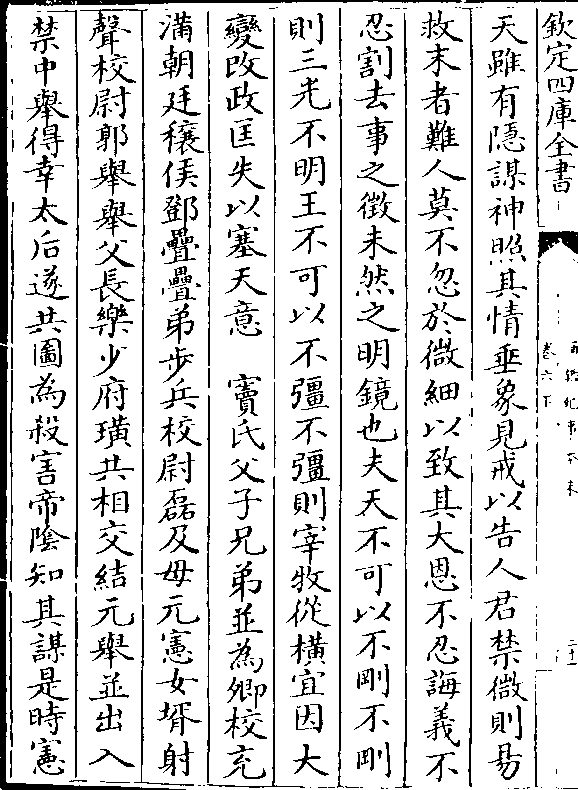 欽定四庫全書
卷六下
天雖有隱謀神照其情垂象見戒以告人君禁微則易
救末者難人莫不忽於微細以致其大恩不忍誨義不
忍割去事之徵未然之明鏡也夫天不可以不剛不剛
則三光不明王不可以不彊不彊則宰牧從橫宜因大
變改政匡失以塞天意　竇氏父子兄弟並為卿校充
滿朝廷穰侯鄧疊疊弟步兵校尉磊及母元憲女壻射
聲校尉郭舉舉父長樂少府璜共相交結元舉並出入
禁中舉得幸太后遂共圖為殺害帝陰知其謀是時憲